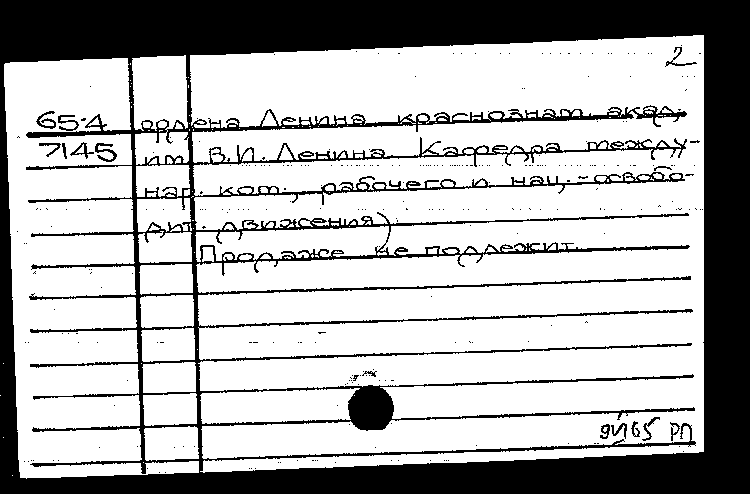 2
65-4 ордена Ленина краснознам. акад.
7145 им. В.И. Ленина. Кафедра между-
нар. ком., рабочего и нац.-освобо-
дит. движения)
Продаже не подлежит.
РП